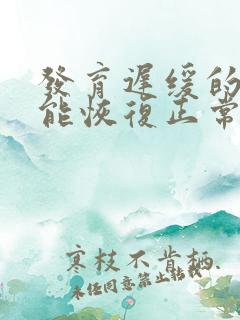 發育遲缓的
能恢復正常
寒枝不肯栖.
未经同意禁止转载